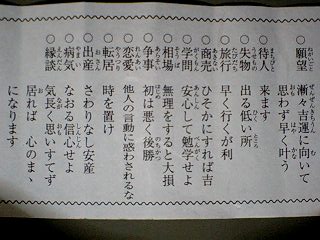 ○願望 漸々吉運に向いて
思わず早く叶う
○待人 来ます
○失物 出る低い所
○旅行 早く行くが利
○商売 ひそかにすれば吉
○学問 安心して勉学せよ
○相場 無理をすると大損
○争事 初は悪く後勝
○恋愛 他人の言動に惑わされるな
○転居 時を置け
○出産 さわりなし安産
○病気 なおる信心せよ
○縁談 気長く思いすてず
居れば 心のまゝ
になります